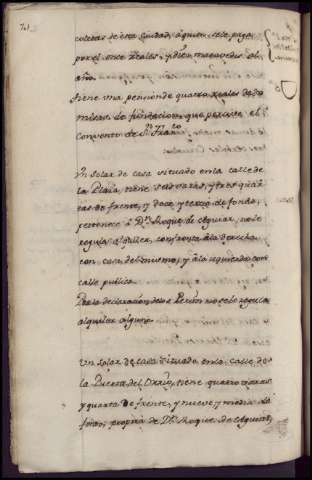 coletas de esta Ciudad, a quien se le paga
por el once reales, y diez maravedis al
año.
Tiene una pension de quatro reales de dos
misas de fundacion, que percive el
Convento de Sn Franco
Un solar de casa situado en la calle de
la Plaza, tiene seis varas, y tres quar
tas de frente, y doce, y tercia de fondo,
pertenece a Dn Roque de Seguiar, no le
regula alquiler, confronta a la derecha
con casa del mismo, y a la izquierda con
calle publica
Por la declaracion de la Relacion no se le regula
alquiler alguno
Un solar de casa situado en la calle de
la Puerta del Orrio, tiene quatro varas
y quarta de frente, y nueve, y media de
fondo, propria de Dn Roque de Seguiar